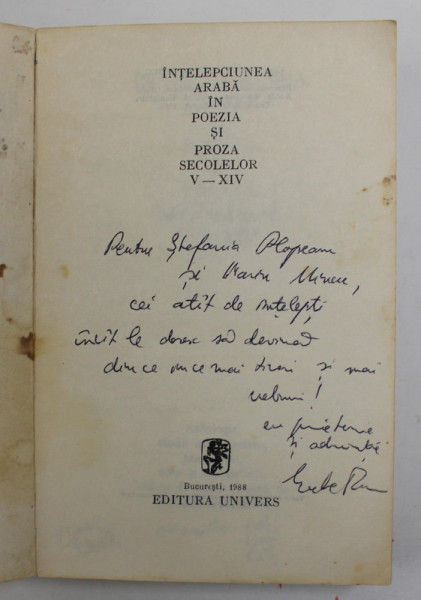 ÎNȚELEPCIUNEA
ARABĂ
ÎN
POEZIA
ȘI
PROZA
SECOLELOR
V — XIV
Pentru Ștefania Plopeanu
și Marin Mincu,
cei atît de înțelepți
încît le doresc să devină
din ce în ce mai tineri și mai
nebuni!
cu prietenie
și admirație
București, 1988
EDITURA UNIVERS